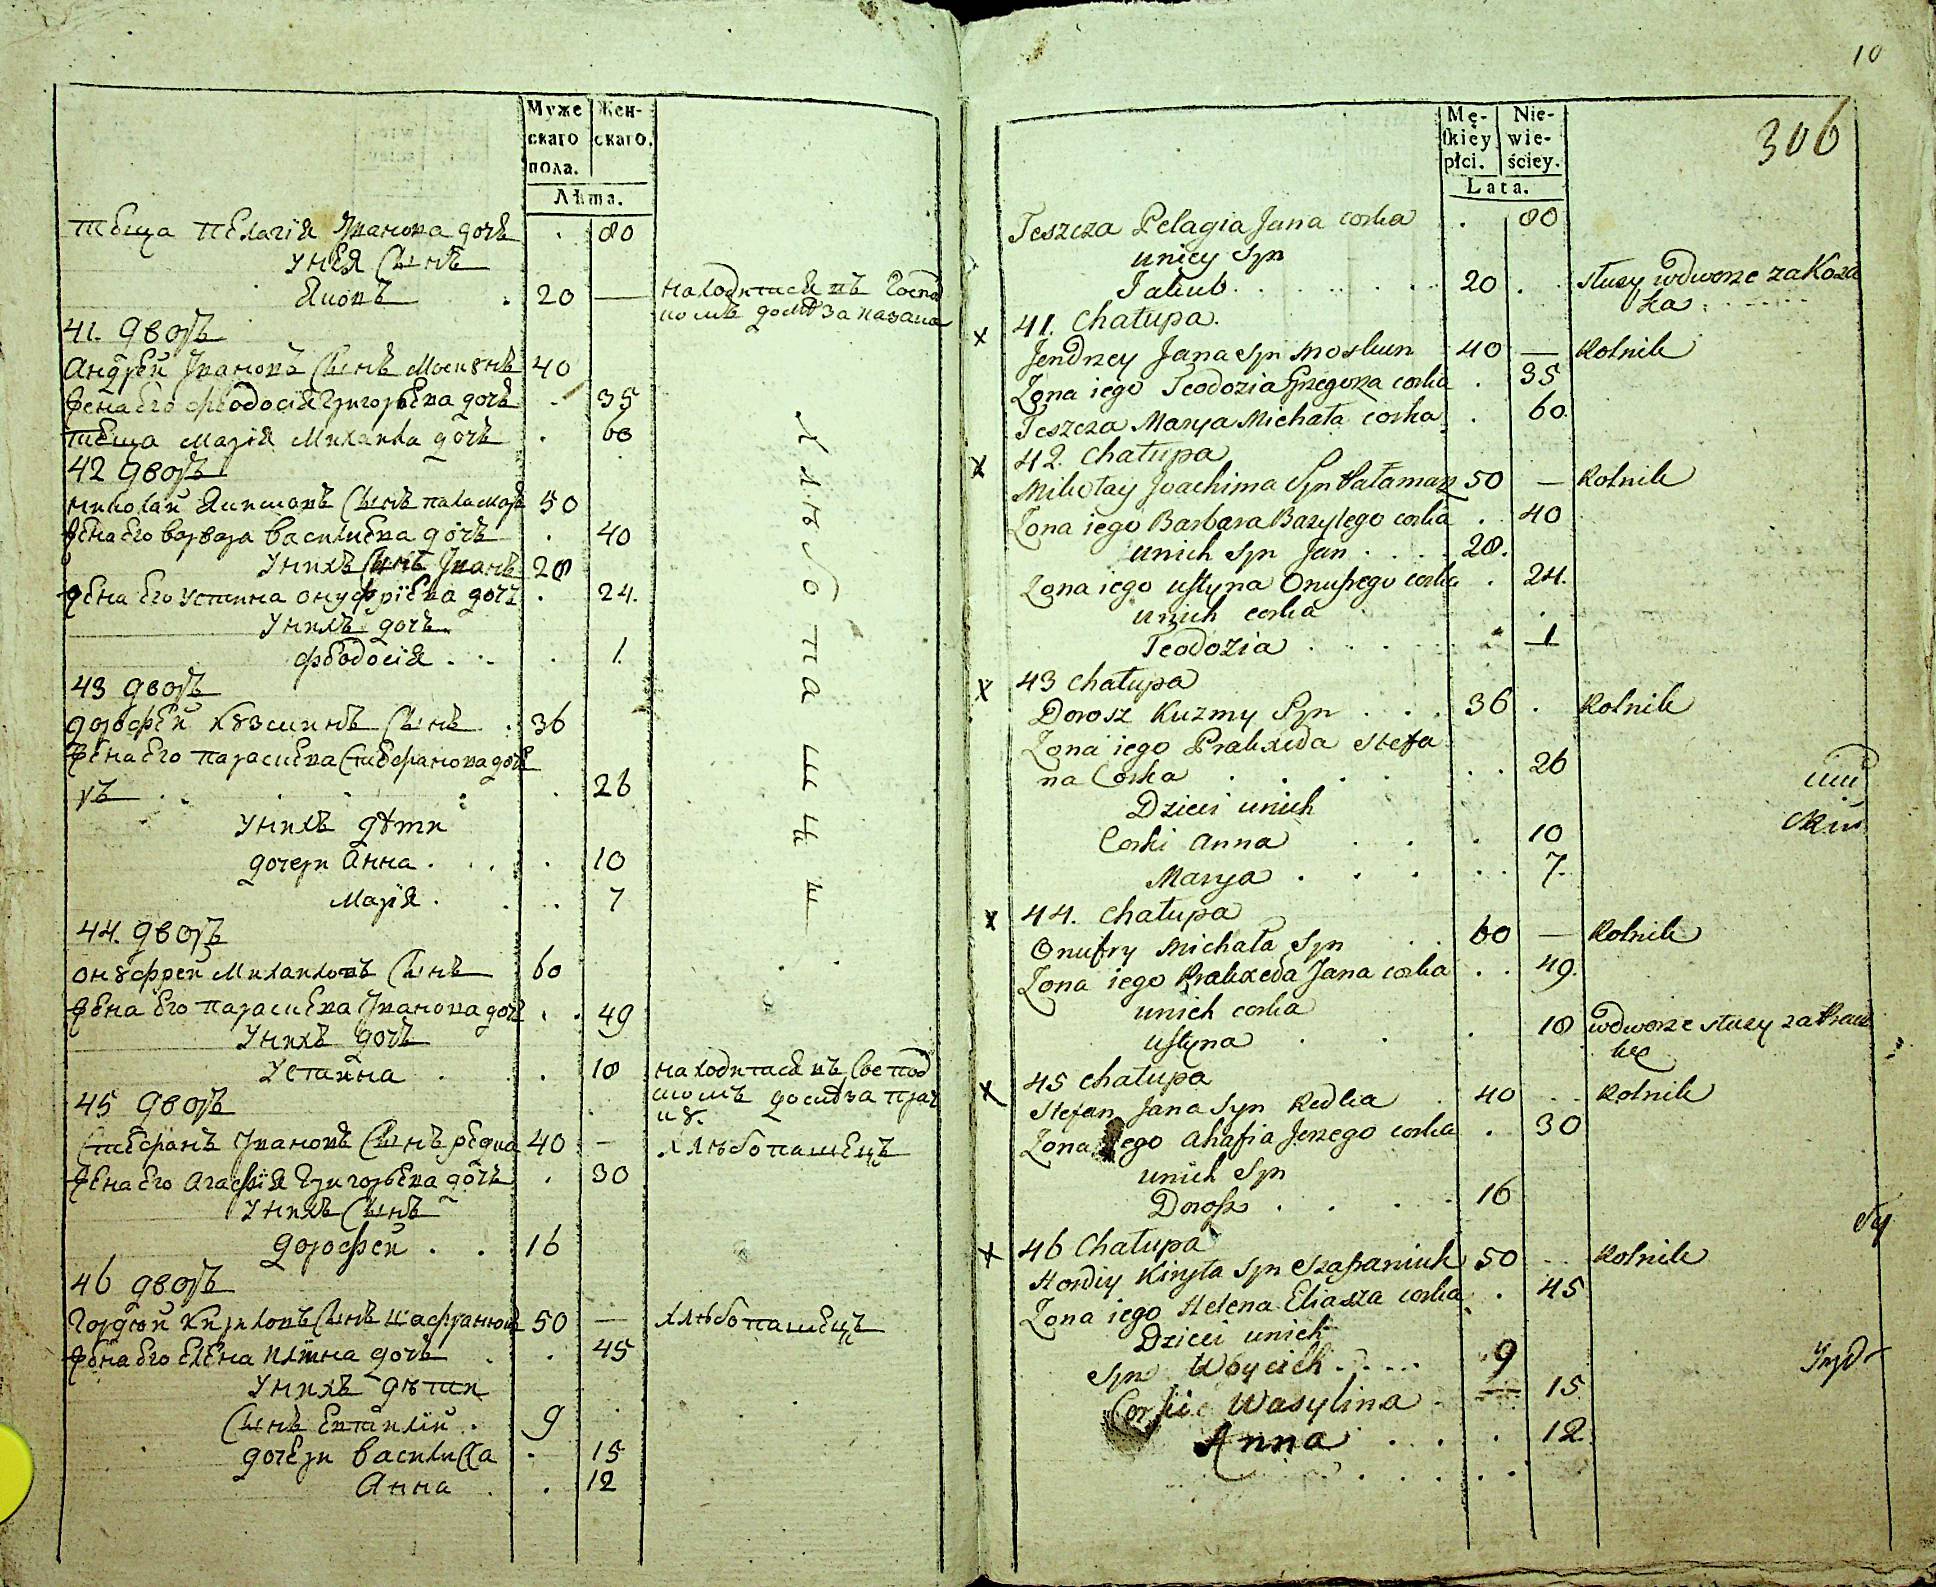 Муже Жен-
скаго скаго.
пола.
Лѣта.
теща Пелагія Иванова дочь . 80
у нея сынъ
Яковъ . 20 — находится въ Господ
комъ домѣ за казака
41. дворъ
Андрей Ивановъ сынъ Москунъ 40
жена его Феодосія Григорьева дочь . 35
теща Марія Михаила дочь . 60
42 дворъ
Николай Якимовъ сынъ паламарь 50
жена его Варвара Василиева дочь . 40
у нихъ сынъ Иванъ 28
жена его Устина Онуфріева дочь . 24.
у нихъ дочь
Феодосія . . . . 1.
43 дворъ
Дорофей Кузминъ сынъ . 36
жена его Параскева Стефанова доч
ь . . . . 26
у нихъ дѣти
дочери Анна . . . . 10
Марія . . . 7
44. дворъ
Онуфрей Михаиловъ сынъ 60
жена его Параскева Иванова доч . . 49
у нихъ дочь
Устина . . . 18 находится въ Господ
комъ домѣ за прач
ку.
45 дворъ
Стефанъ Ивановъ сынъ Редка 40 — хлѣбопашецъ
жена его Агафія Григорьева дочь . 30
у нихъ сынъ
Дорофей . . 16
46 дворъ
Гордій Кириловъ сынъ Шафранюк 50 — хлѣбопашецъ
жена его Елена Иліина дочь . . 45
у нихъ дѣти
сынъ Евтихій . 9
дочери Василисса . 15
Анна . . 12
Хлѣбопашцы
10
306
Mę- Nie-
ſkiey wie-
płci. ściey.
Lata.
Teszcza Pelagia Jana corka . 80
u niey Syn
Jakub . . . . . . 20 . . słuzy w dworze za Koza
ka.
x 41. Chałupa.
Jendrzey Jana syn Moskun 40 — Rolnik
Zona iego Teodozia Grzegorza corka . 35
Teszcza Marya Michała corka . 60.
x 42. Chałupa
Mikołay Joachima Syn Pałamarz 50 — Rolnik
Zona iego Barbara Bazylego corka . 40
u nich syn Jan . . . . 28.
Zona iego Uſtyna Onufrego corka . 24.
u nich corka
Teodozia . . . . . 1
x 43 chałupa
Dorosz Kuzmy Syn . . . 36 . Rolnik
Zona iego Praxeda Stefa
na Corka . . . . . . 26
Dzieci u nich
Corki Anna . . . 10
Marya . . . . . 7.
x 44. chałupa
Onufry Michała Syn . . 60 — Rolnik
Zona iego Praxeda Jana corka . . 49.
u nich corka
Uſtyna . . . 18 w dworze słuzy za Pracz
kę
x 45 chałupa
Stefan Jana Syn Redka . 40 . . Rolnik
Zona iego Ahafia Jerzego corka . 30
u nich Syn
Dorosz . . . . 16
x 46 Chałupa
Hordiy Kiryła Syn Szafraniuk 50 . . Rolnik
Zona iego Helena Eliasza corka . . 45
Dzieci u nich
Syn Woycich . . . . 9
Corki Wasylina . — 15
Anna . . . . . 12